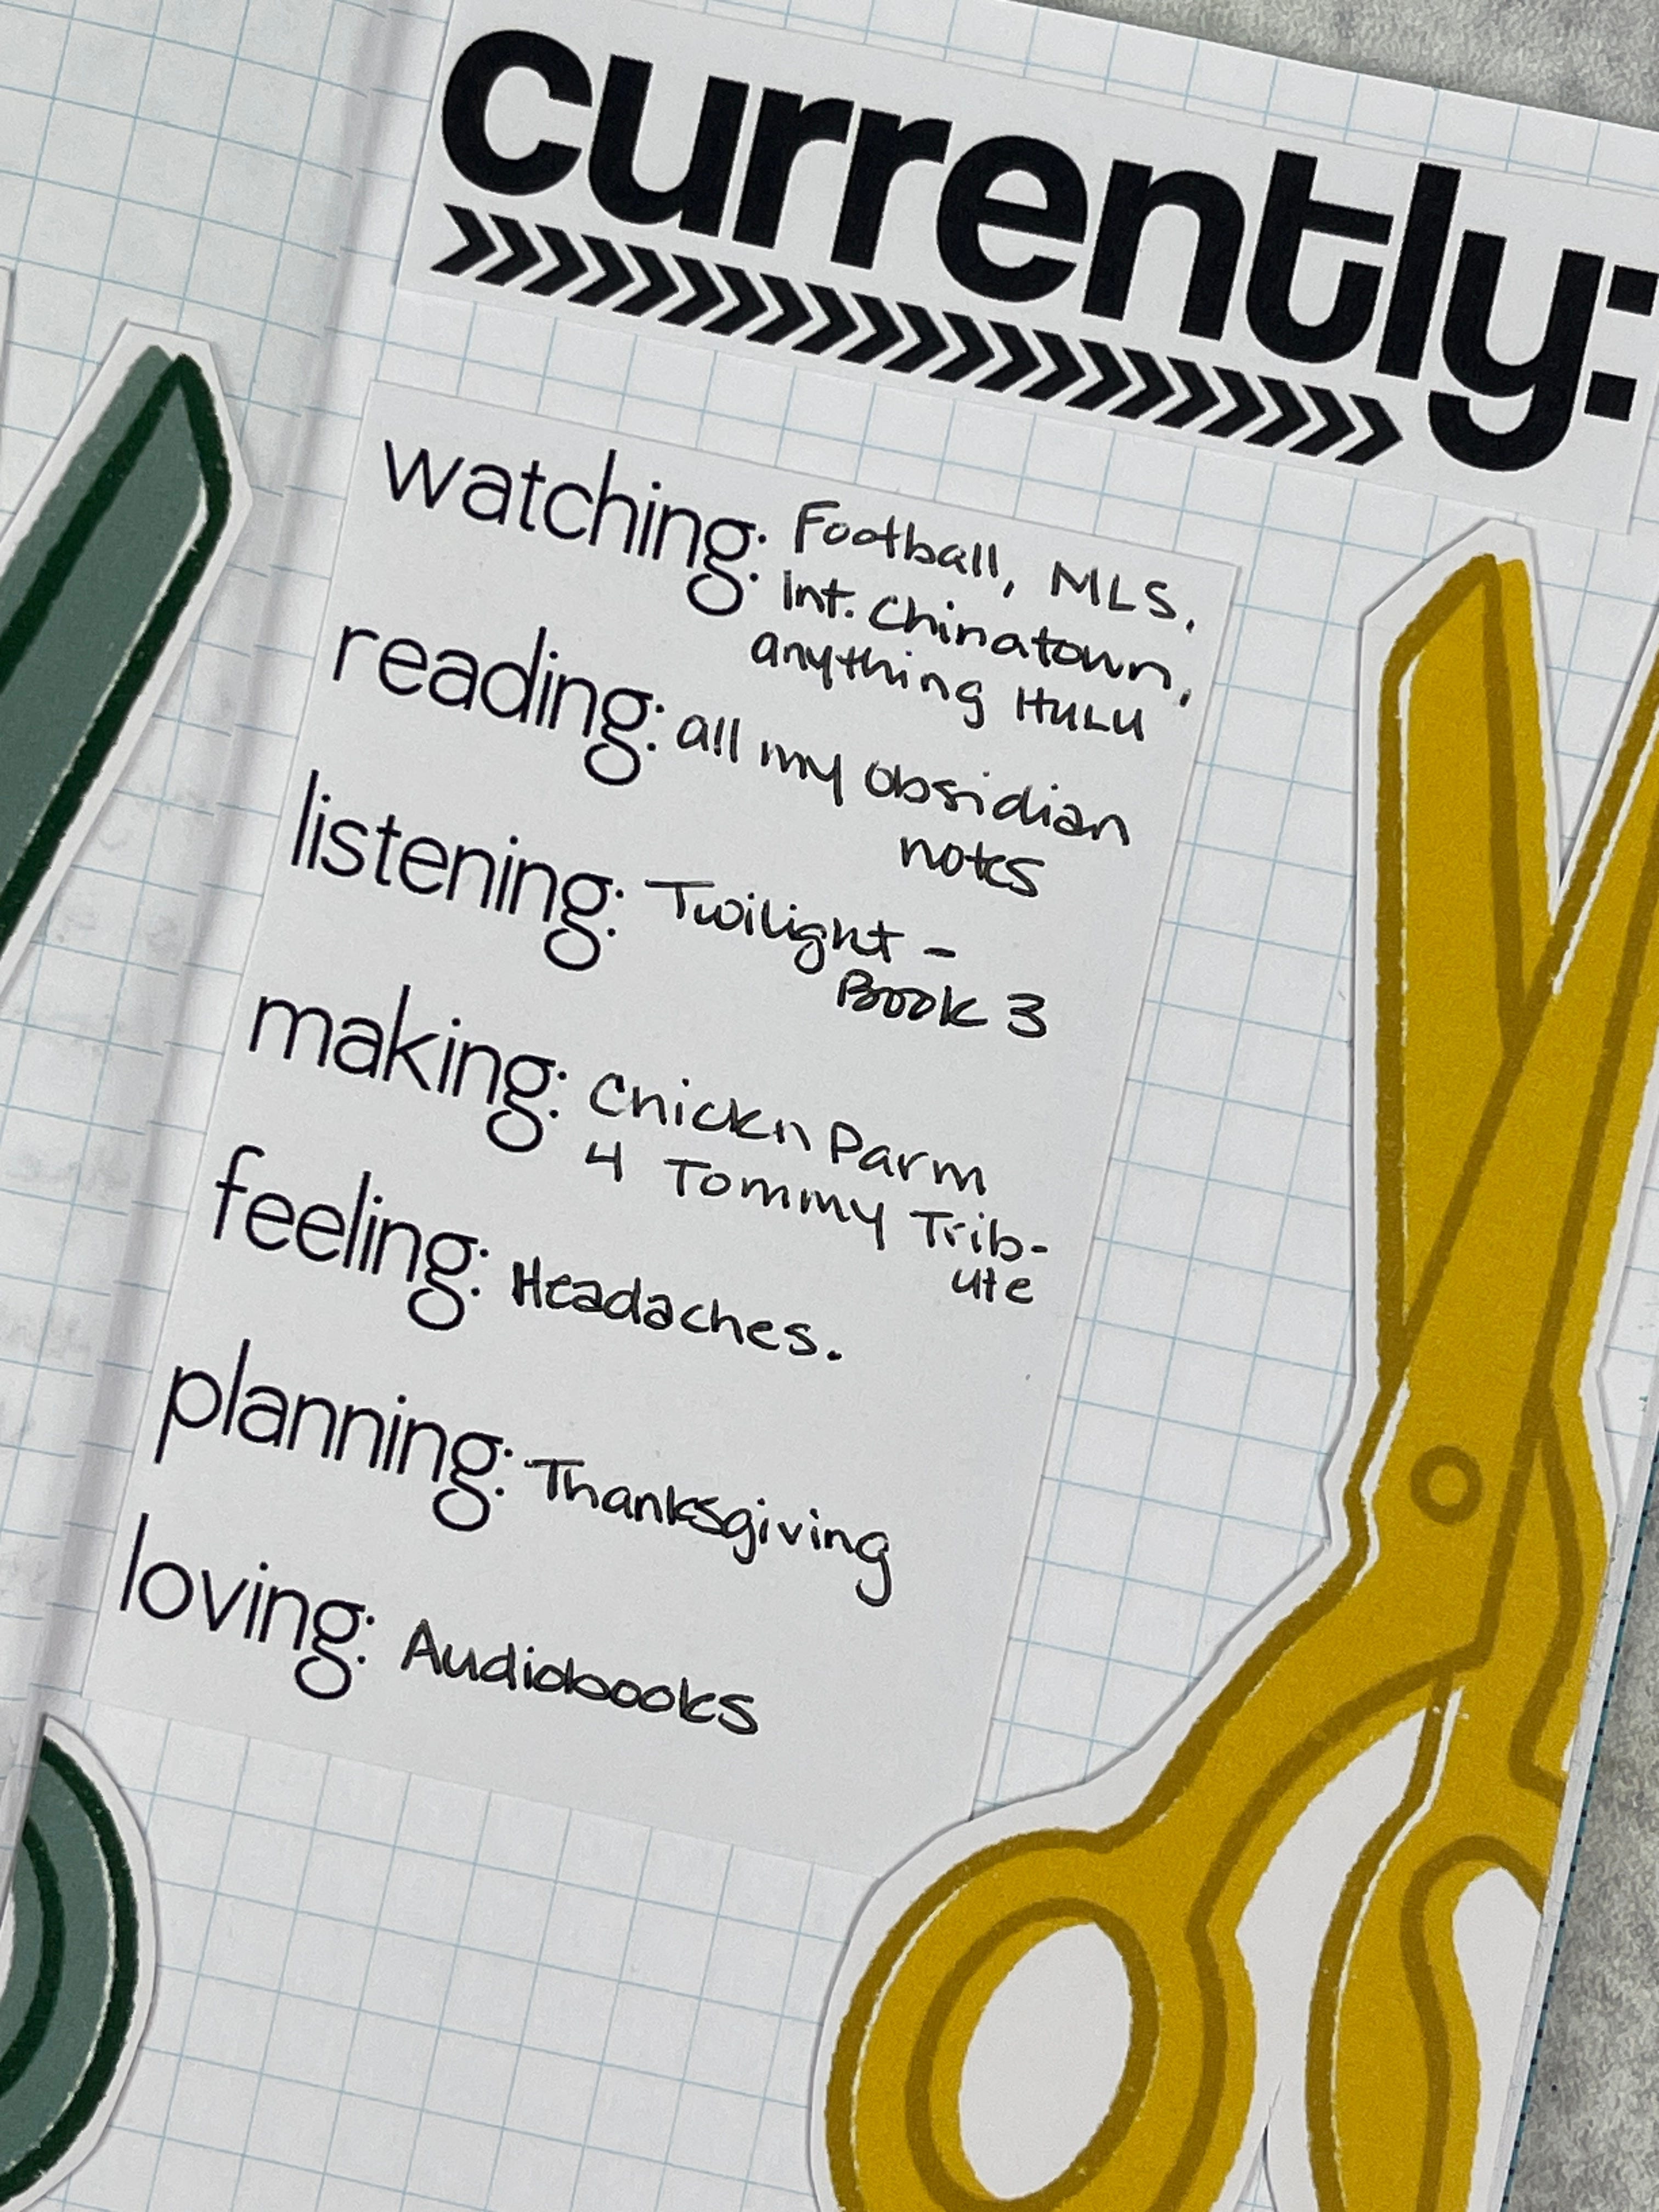 currently:
watching: Football, MLS.
Int. Chinatown,
anything HULU
reading: all my obsidian
notes
listening: Twilight -
Book 3
making: Chickn Parm
4 Tommy Trib-
ute
feeling: Headaches.
planning: Thanksgiving
loving: Audiobooks